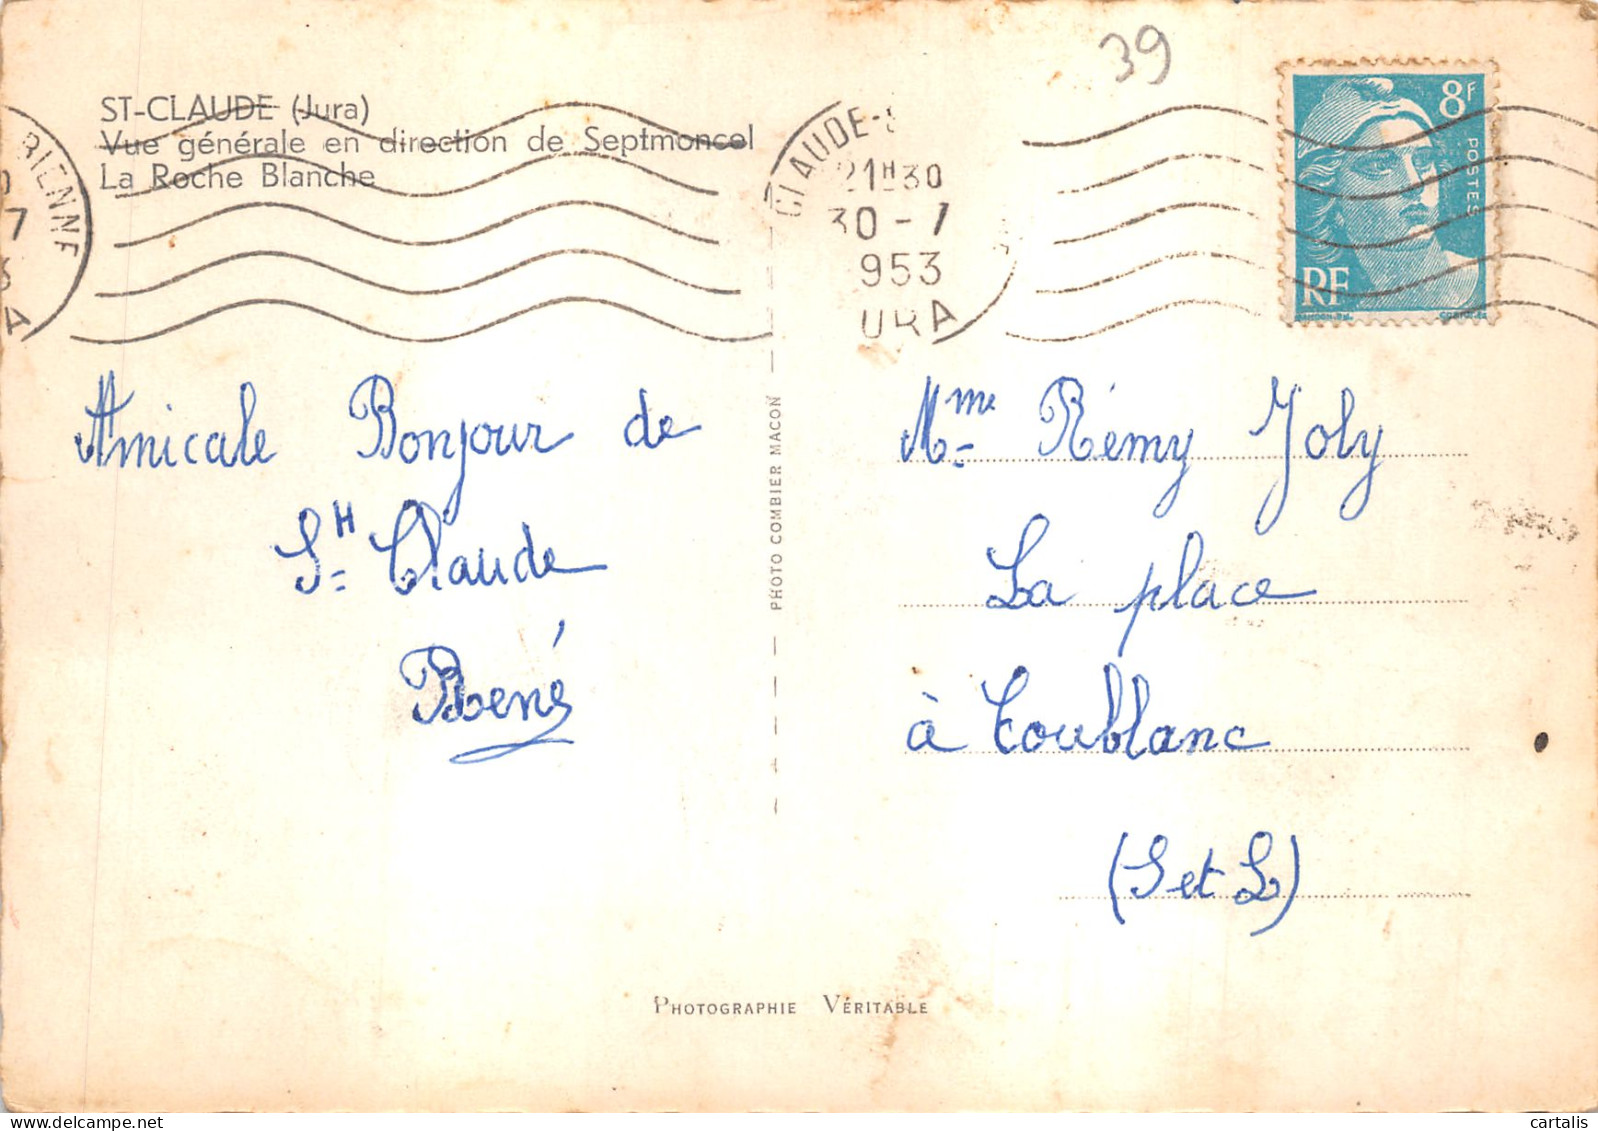 39
ST-CLAUDE (Jura)
Vue générale en direction de Septmoncel
La Roche Blanche
RIENNE
7
A
CLAUDE-
21H30
30-7
953
URA
8F
POSTES
RF
Amicale Bonjour de
St Claude
René
PHOTO COMBIER MACON
Mme Rémy Joly
La place
à Toublanc
(S et L)
PHOTOGRAPHIE VÉRITABLE
cartalis